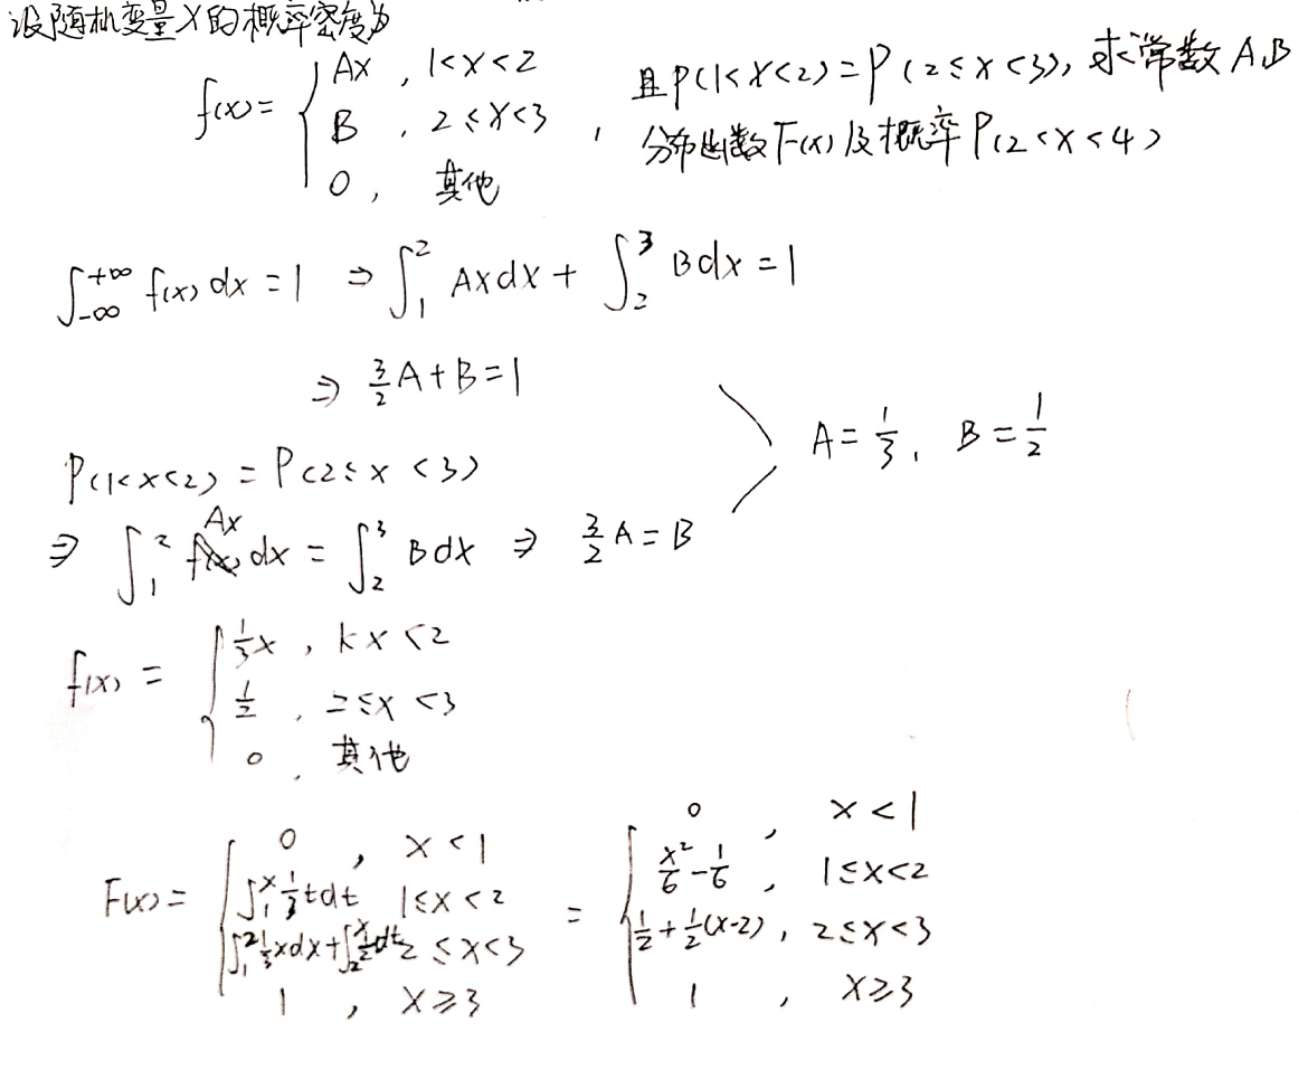 设随机变量X的概率密度为
f(x)= { Ax , 1<x<2
B , 2≤x<3 ,
0 , 其他
且P(1<X<2)=P(2≤x<3), 求常数A,B
分布函数F(x)及概率P(2<x<4)
∫_{-∞}^{+∞} f(x) dx = 1 ⇒ ∫_1^2 Ax dx + ∫_2^3 B dx = 1
⇒ 3/2 A + B = 1
A = 1/3 , B = 1/2
P(1<x<2) = P(2≤x<3)
⇒ ∫_1^2 Ax dx = ∫_2^3 B dx ⇒ 3/2 A = B
f(x) = { 1/3 x , 1<x<2
1/2 , 2≤x<3
0 , 其他
F(x) = { 0 , x<1
∫_1^x 1/3 t dt 1≤x<2
∫_1^2 1/3 x dx + ∫_2^x 1/2 dt 2≤x<3
1 , x≥3
= { 0 , x<1
x²/6 - 1/6 , 1≤x<2
1/2 + 1/2(x-2) , 2≤x<3
1 , x≥3